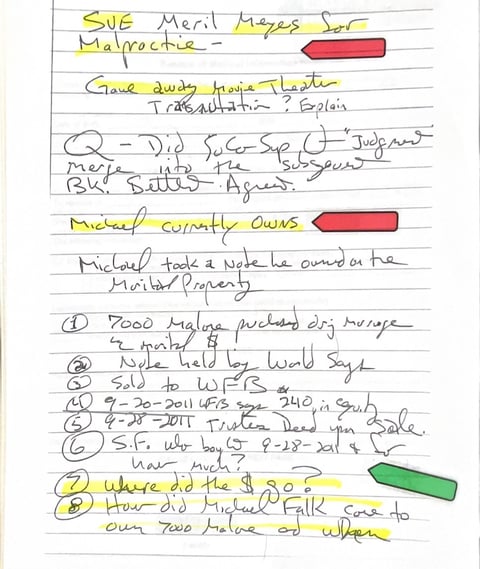 SUE Meril Meyes for
Malproctie -
Gave away Movie Theater
? Explain
Q - Did SoCo Sup Ct "Judgment
merge into the subsequent
BK. Settl. Agree.
Michael currently Owns
Michael took a Note he owned on the
Marital Property
① 7000 Malone purchased during marriage
w marital $
② Note held by World Savgs
③ Sold to WFB
④ 9-20-2011 WFB says 240, in equity
⑤ 9-28-2011 Trustees Deed upon Sale.
⑥ S.F. who bought 9-28-2011 & for
how much?
⑦ Where did the $ go?
⑧ How did Michael Falk come to
own 7000 Malone and When